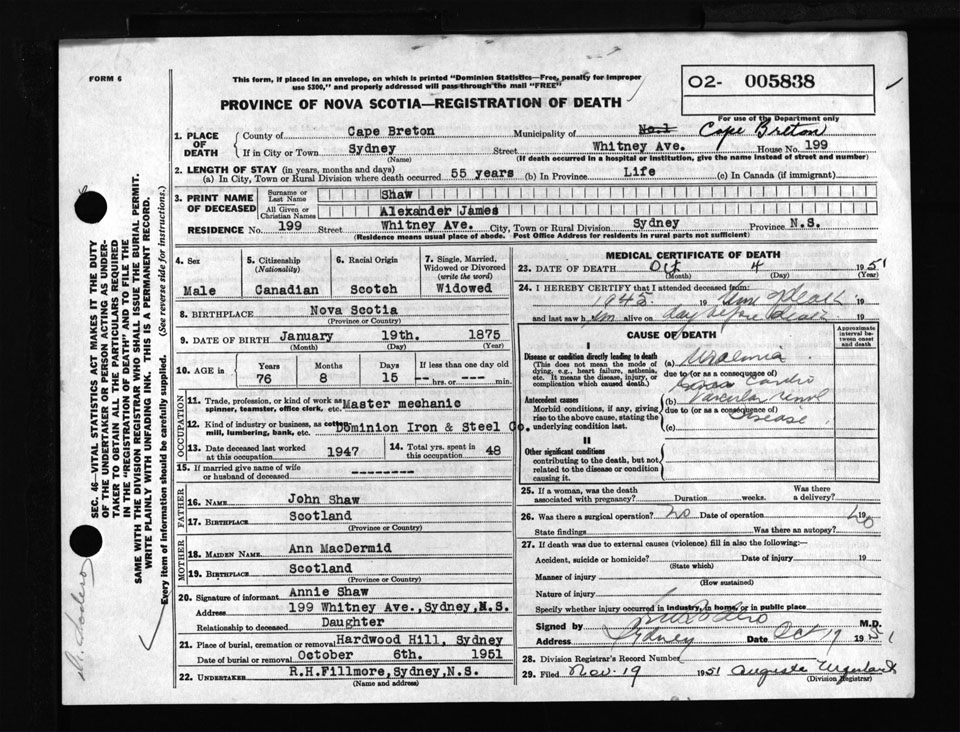 FORM 6
This form, if placed in an envelope, on which is printed "Dominion Statistics—Free, penalty for improper
use $300," and properly addressed will pass through the mail "FREE"
02- 005838
PROVINCE OF NOVA SCOTIA—REGISTRATION OF DEATH
For use of the Department only
1. PLACE OF DEATH County of Cape Breton Municipality of No.1 Cape Breton
If in City or Town Sydney Street Whitney Ave. House No. 199
(Name) (If death occurred in a hospital or institution, give the name instead of street and number)
2. LENGTH OF STAY (in years, months and days)
(a) In City, Town or Rural Division where death occurred 55 years (b) In Province Life (c) In Canada (if immigrant)
3. PRINT NAME OF DECEASED Surname or Last Name Shaw
All Given or Christian Names Alexander James
RESIDENCE No. 199 Street Whitney Ave. City, Town or Rural Division Sydney Province N.S.
(Residence means usual place of abode. Post Office Address for residents in rural parts not sufficient)
4. Sex Male
5. Citizenship (Nationality) Canadian
6. Racial Origin Scotch
7. Single, Married, Widowed or Divorced (write the word) Widowed
8. BIRTHPLACE Nova Scotia
(Province or Country)
9. DATE OF BIRTH January 19th. 1875
(Month) (Day) (Year)
10. AGE Years 76 Months 8 Days 15 If less than one day old -- hrs. or -- min.
OCCUPATION
11. Trade, profession, or kind of work as spinner, teamster, office clerk, etc. Master mechanic
12. Kind of industry or business, as cotton mill, lumbering, bank, etc. Dominion Iron & Steel Co.
13. Date deceased last worked at this occupation 1947
14. Total yrs. spent in this occupation 48
15. If married give name of wife or husband of deceased ---------
FATHER
16. NAME John Shaw
17. BIRTHPLACE Scotland
(Province or Country)
MOTHER
18. MAIDEN NAME Ann MacDermid
19. BIRTHPLACE Scotland
(Province or Country)
20. Signature of informant Annie Shaw
Address 199 Whitney Ave., Sydney, N.S.
Relationship to deceased Daughter
21. Place of burial, cremation or removal Hardwood Hill, Sydney
Date of burial or removal October 6th. 1951
22. UNDERTAKER R.H.Fillmore, Sydney, N.S.
(Name and address)
MEDICAL CERTIFICATE OF DEATH
23. DATE OF DEATH Oct 4 1951
(Month) (Day) (Year)
24. I HEREBY CERTIFY that I attended deceased from:
1945 19 death 19
and last saw h im alive on day before death 19
CAUSE OF DEATH
Approximate interval between onset and death
I
Disease or condition directly leading to death
(This does not mean the mode of dying, e.g., heart failure, asthenia, etc. It means the disease, injury, or complication which caused death.)
(a) Uraemia
due to (or as a consequence of)
Antecedent causes
Morbid conditions, if any, giving rise to the above cause, stating the underlying condition last.
Cardio
(b) Vascular renal
due to (or as a consequence of)
Disease
(c)
II
Other significant conditions
contributing to the death, but not related to the disease or condition causing it.
25. If a woman, was the death associated with pregnancy? Duration weeks. Was there a delivery?
26. Was there a surgical operation? no Date of operation 19
State findings Was there an autopsy? no
27. If death was due to external causes (violence) fill in also the following:—
Accident, suicide or homicide? Date of injury 19
(State which)
Manner of injury
(How sustained)
Nature of injury
Specify whether injury occurred in industry, in home, or in public place
Signed by M.D.
Address Sydney Date Oct 19 1951
28. Division Registrar's Record Number
29. Filed Nov. 19 1951 Augusta Urquhart
(Division Registrar)
SEC. 46—VITAL STATISTICS ACT MAKES IT THE DUTY
OF THE UNDERTAKER OR PERSON ACTING AS UNDER-
TAKER TO OBTAIN ALL THE PARTICULARS REQUIRED
IN THE "REGISTRATION OF DEATH" AND TO FILE THE
SAME WITH THE DIVISION REGISTRAR WHO SHALL ISSUE THE BURIAL PERMIT.
WRITE PLAINLY WITH UNFADING INK. THIS IS A PERMANENT RECORD.
Every item of information should be carefully supplied. (See reverse side for instructions.)